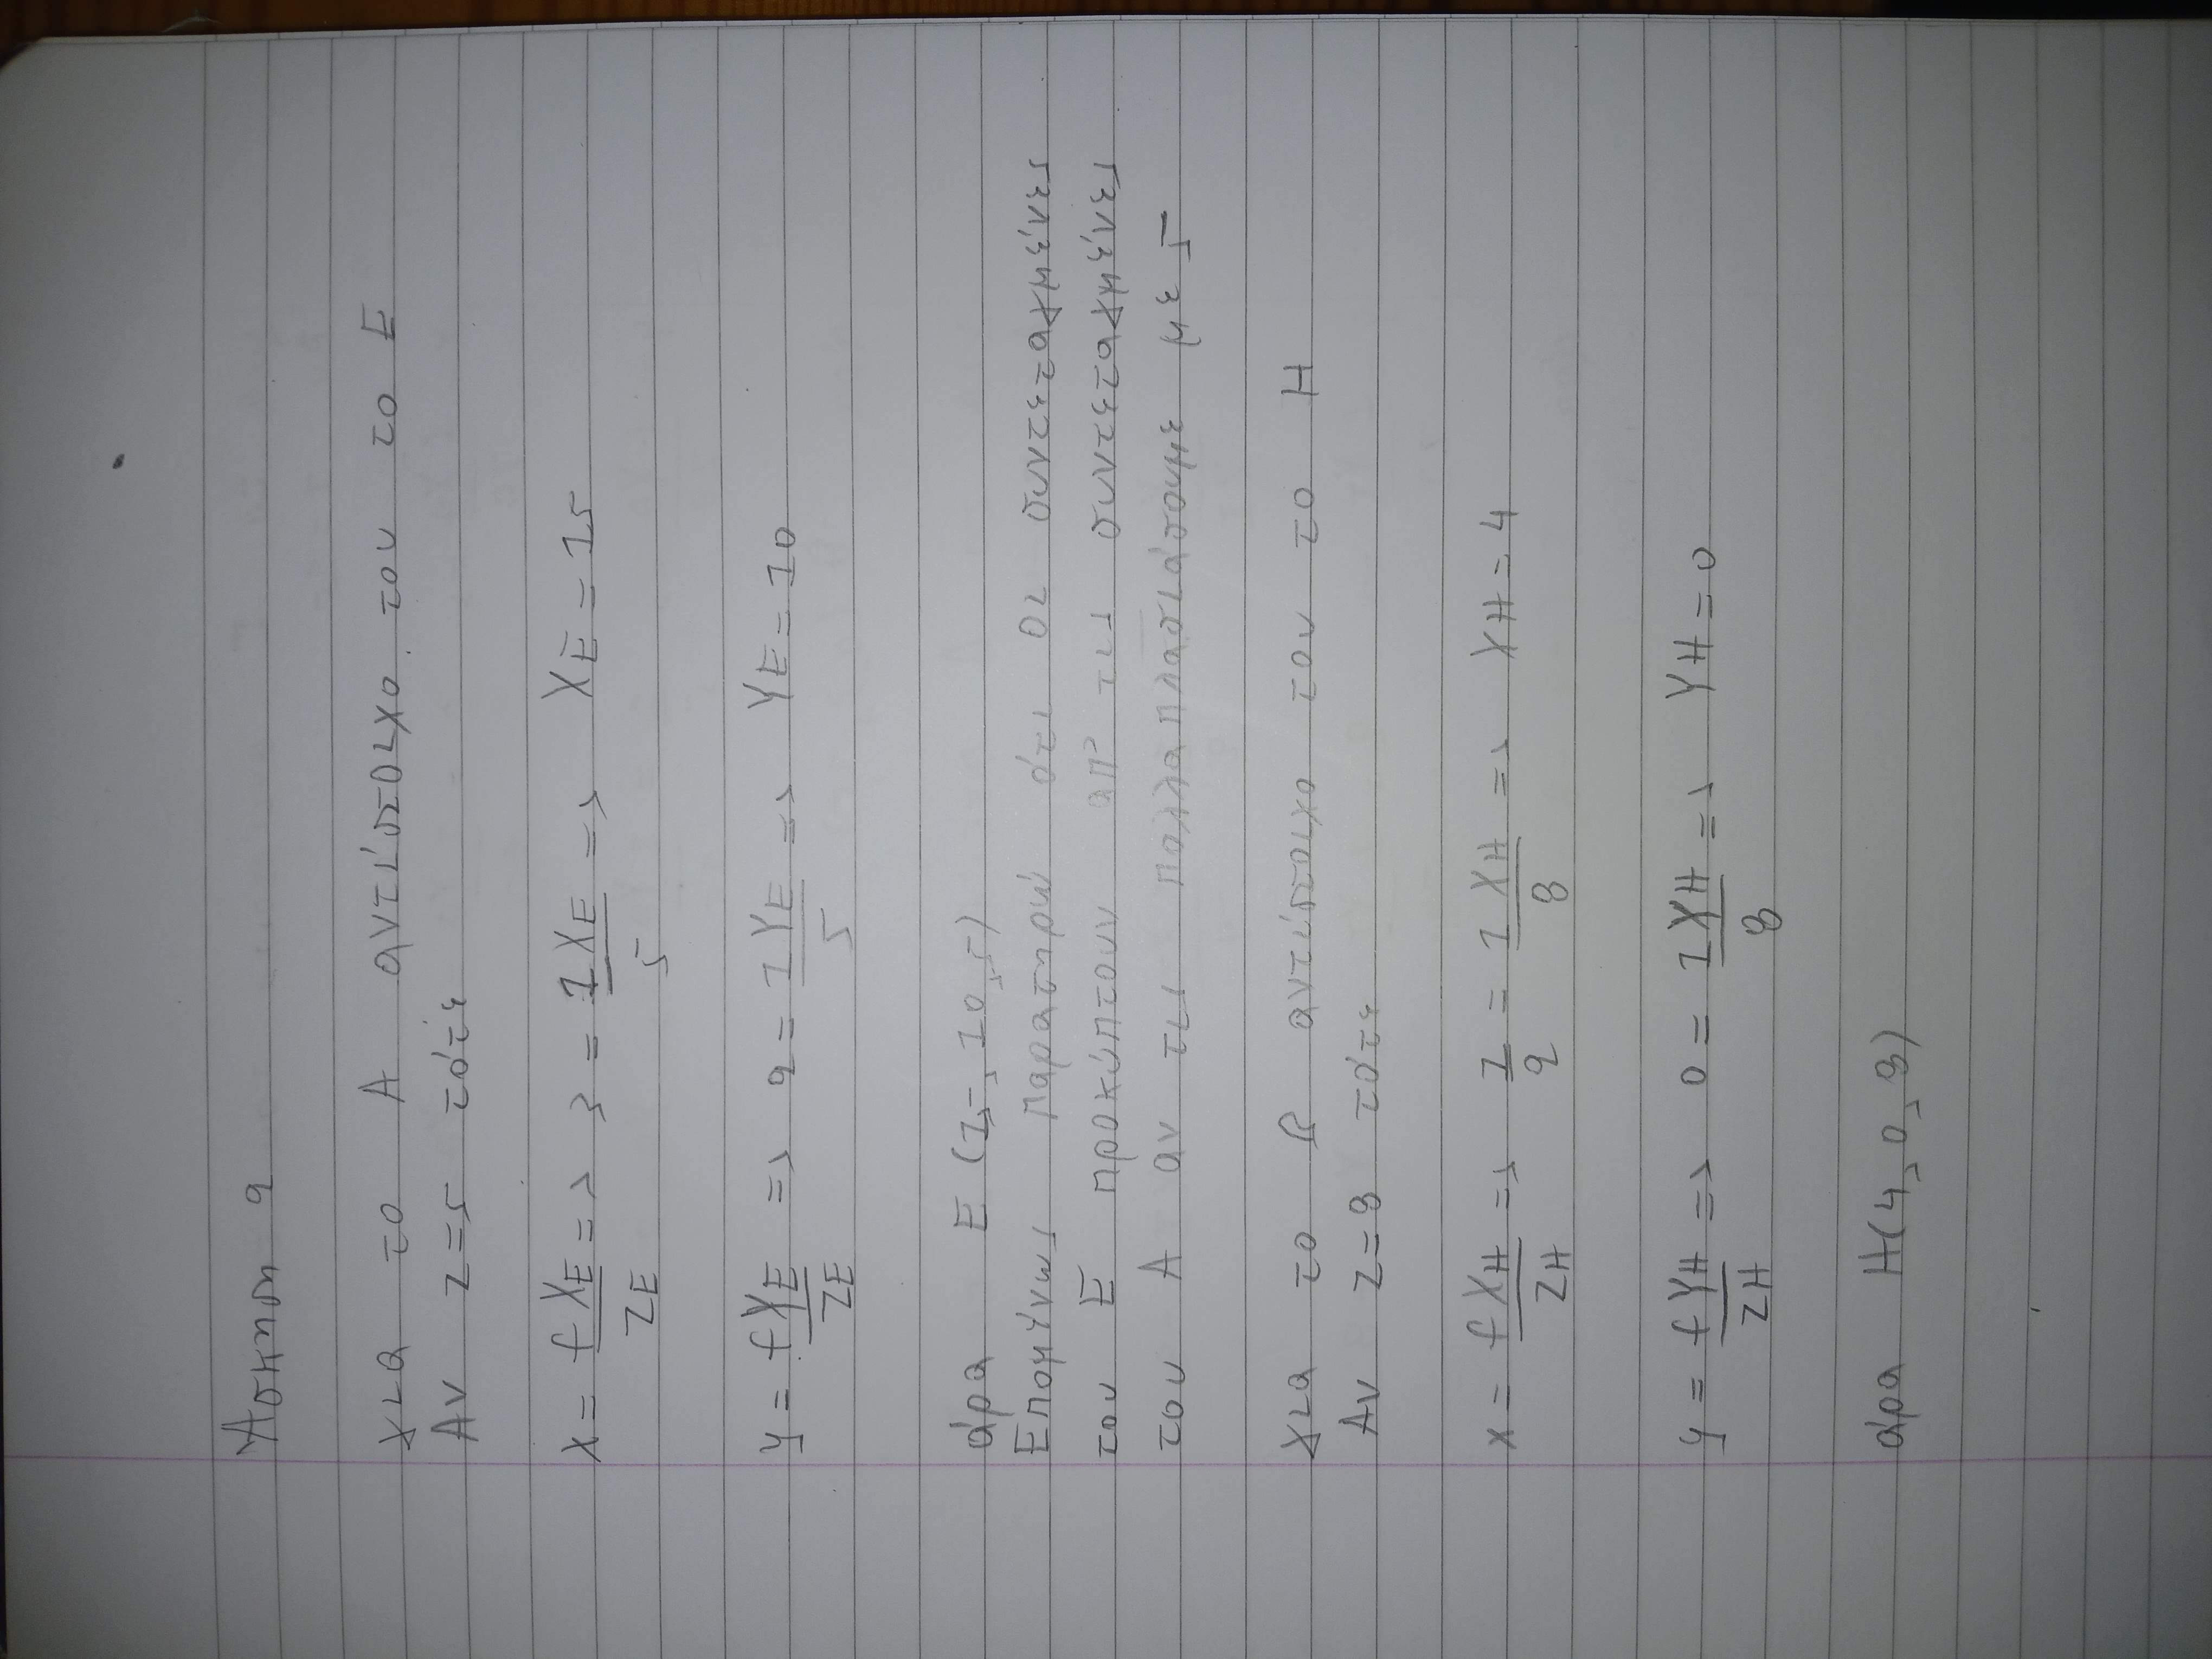 Άσκηση 2
για το A αντίστοιχο του το E
Αν z=5 τότε
x = fXE/ZE => 3 = 1XE/5 => XE = 15
y = fYE/ZE => 2 = 1YE/5 => YE = 10
άρα E (15, 10, 5)
Επομένως παρατηρώ ότι οι συντεταγμένες
του E προκύπτουν από τις συντεταγμένες
του A αν τις πολλαπλασιάσουμε με 5
για το B αντίστοιχο του το H
Αν z=8 τότε
x = fXH/ZH => 1/2 = 1XH/8 => XH = 4
y = fYH/ZH => 0 = 1YH/8 => YH = 0
άρα H(4, 0, 8)